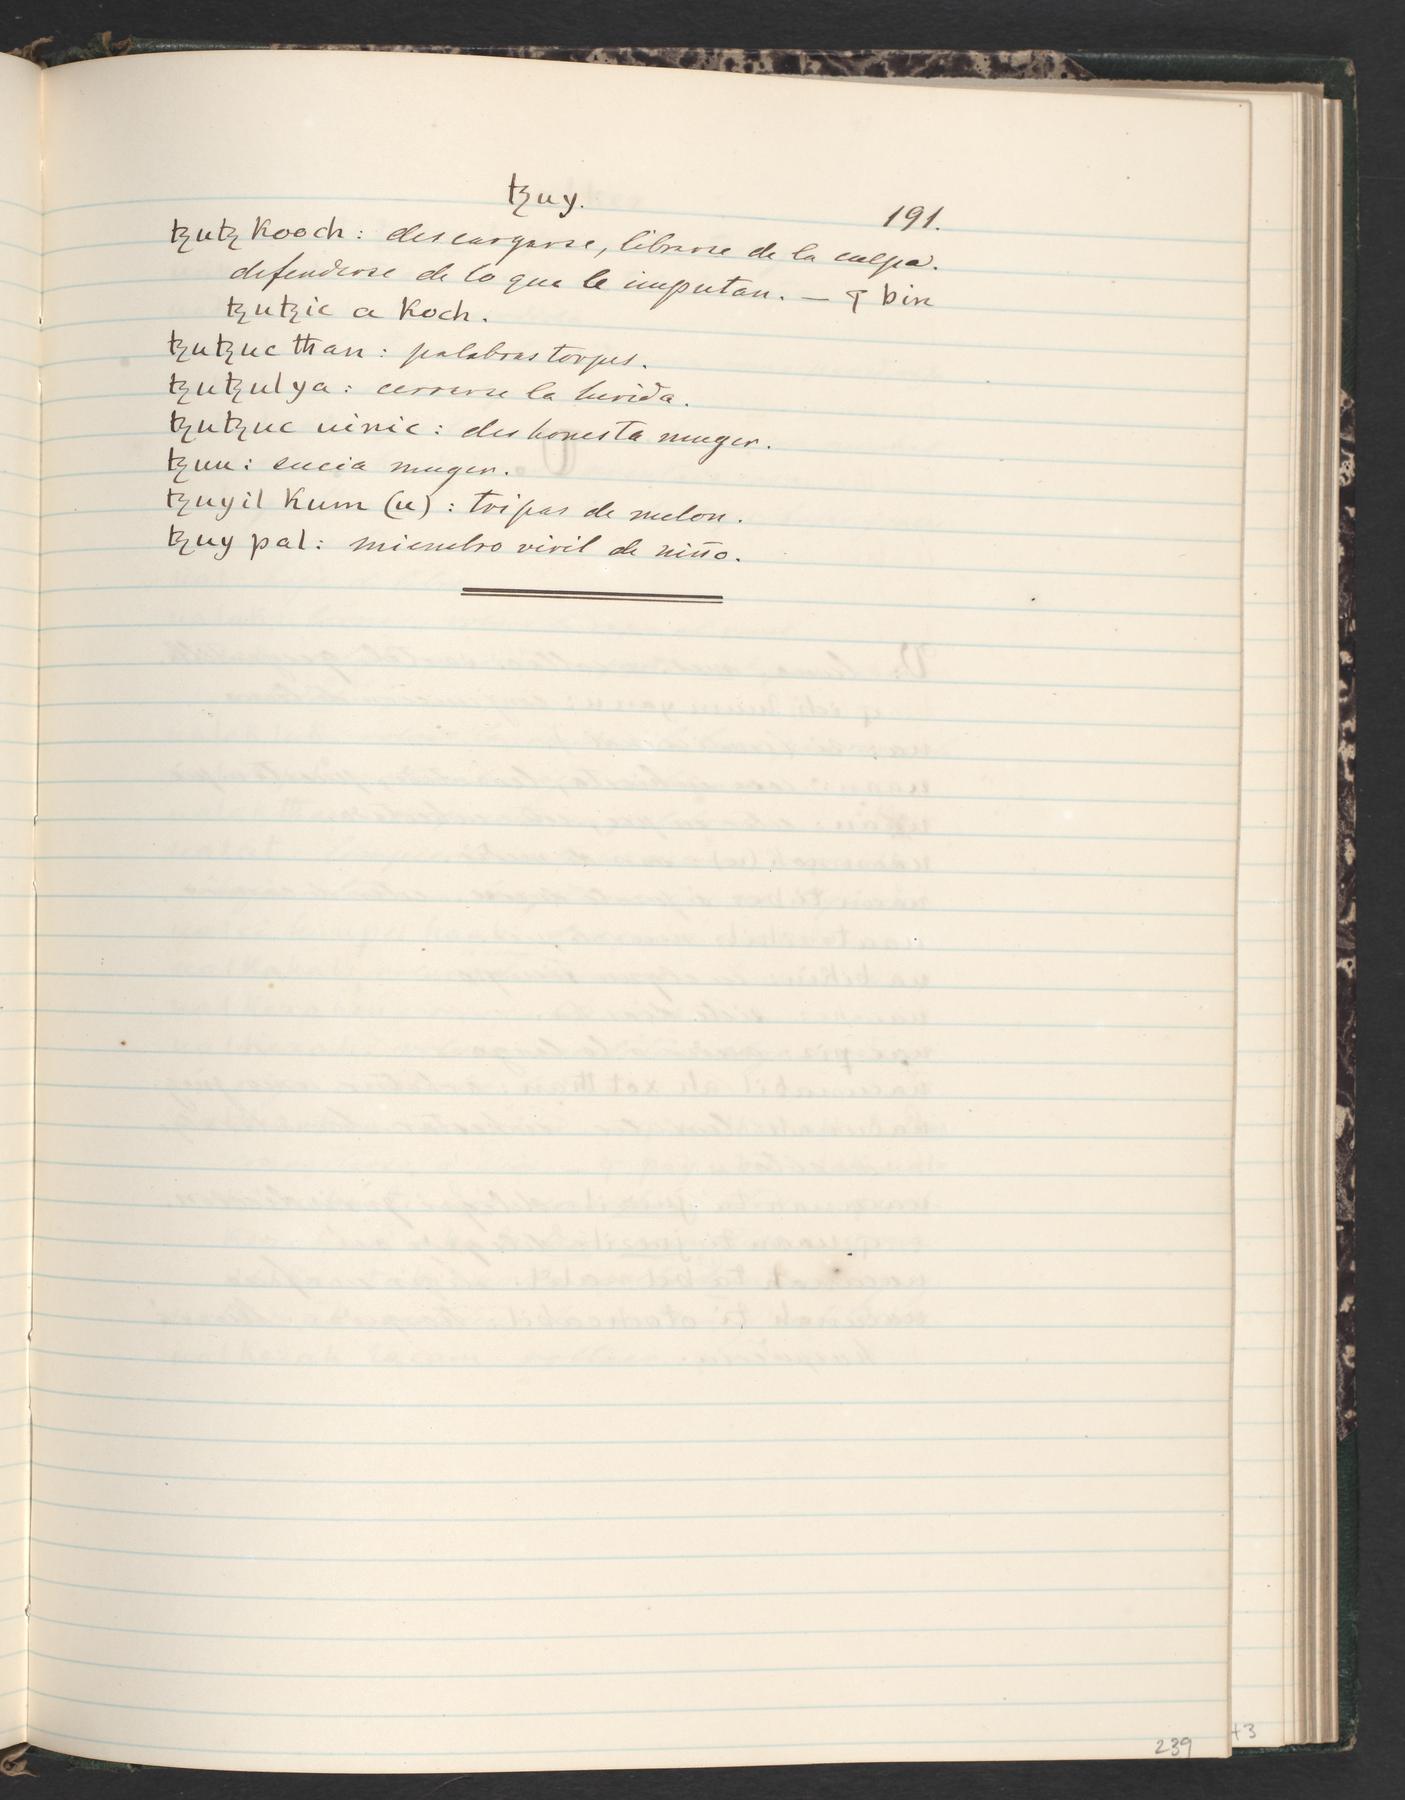 ꜩuy.
191.
ꜩuꜩ kooch: descargarse, librarse de la culpa.
defenderse de lo que le imputan. — ꝗ bin
ꜩuꜩic a koch.
ꜩuꜩuc than: palabras torpes.
ꜩuꜩul ya: cerrarse la herida.
ꜩuꜩuc uinic: deshonesta muger.
ꜩuu: sucia muger.
ꜩuyil kum (u): tripas de melon.
ꜩuy pal: miembro viril de niño.
239
43